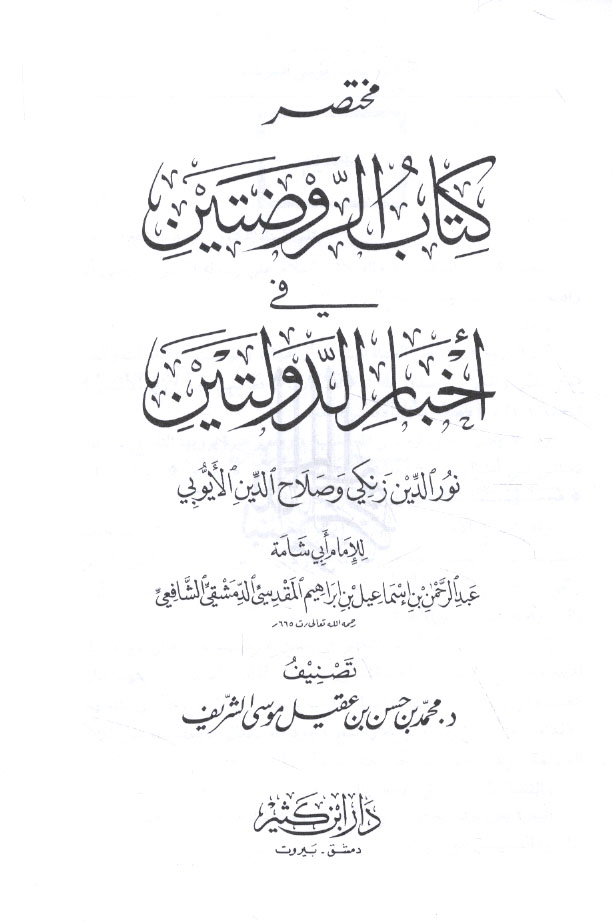 مختصر
كِتَابُ الرَّوْضَتَيْنِ
في
أَخْبَارِ الدَّوْلَتَيْنِ
نُورُ الدِّيْن زَنكي وَصَلَاح الدِّينِ الأَيُّوبي
لِلإِمَام أَبي شَامَة
عَبدِ الرَّحْمٰنِ بْنِ إِسْمَاعِيل بْنِ إِبْرَاهِيم المَقْدِسيِّ الدِّمَشْقِيِّ الشَّافِعِيِّ
رحمه الله تعالى ت ٦٦٥هـ
تَصْنِيْفُ
د. محمّد بن حسن بن عقيل موسى الشّريف
دَارُ ابْنِ كَثِيْر
دمشق - بيروت